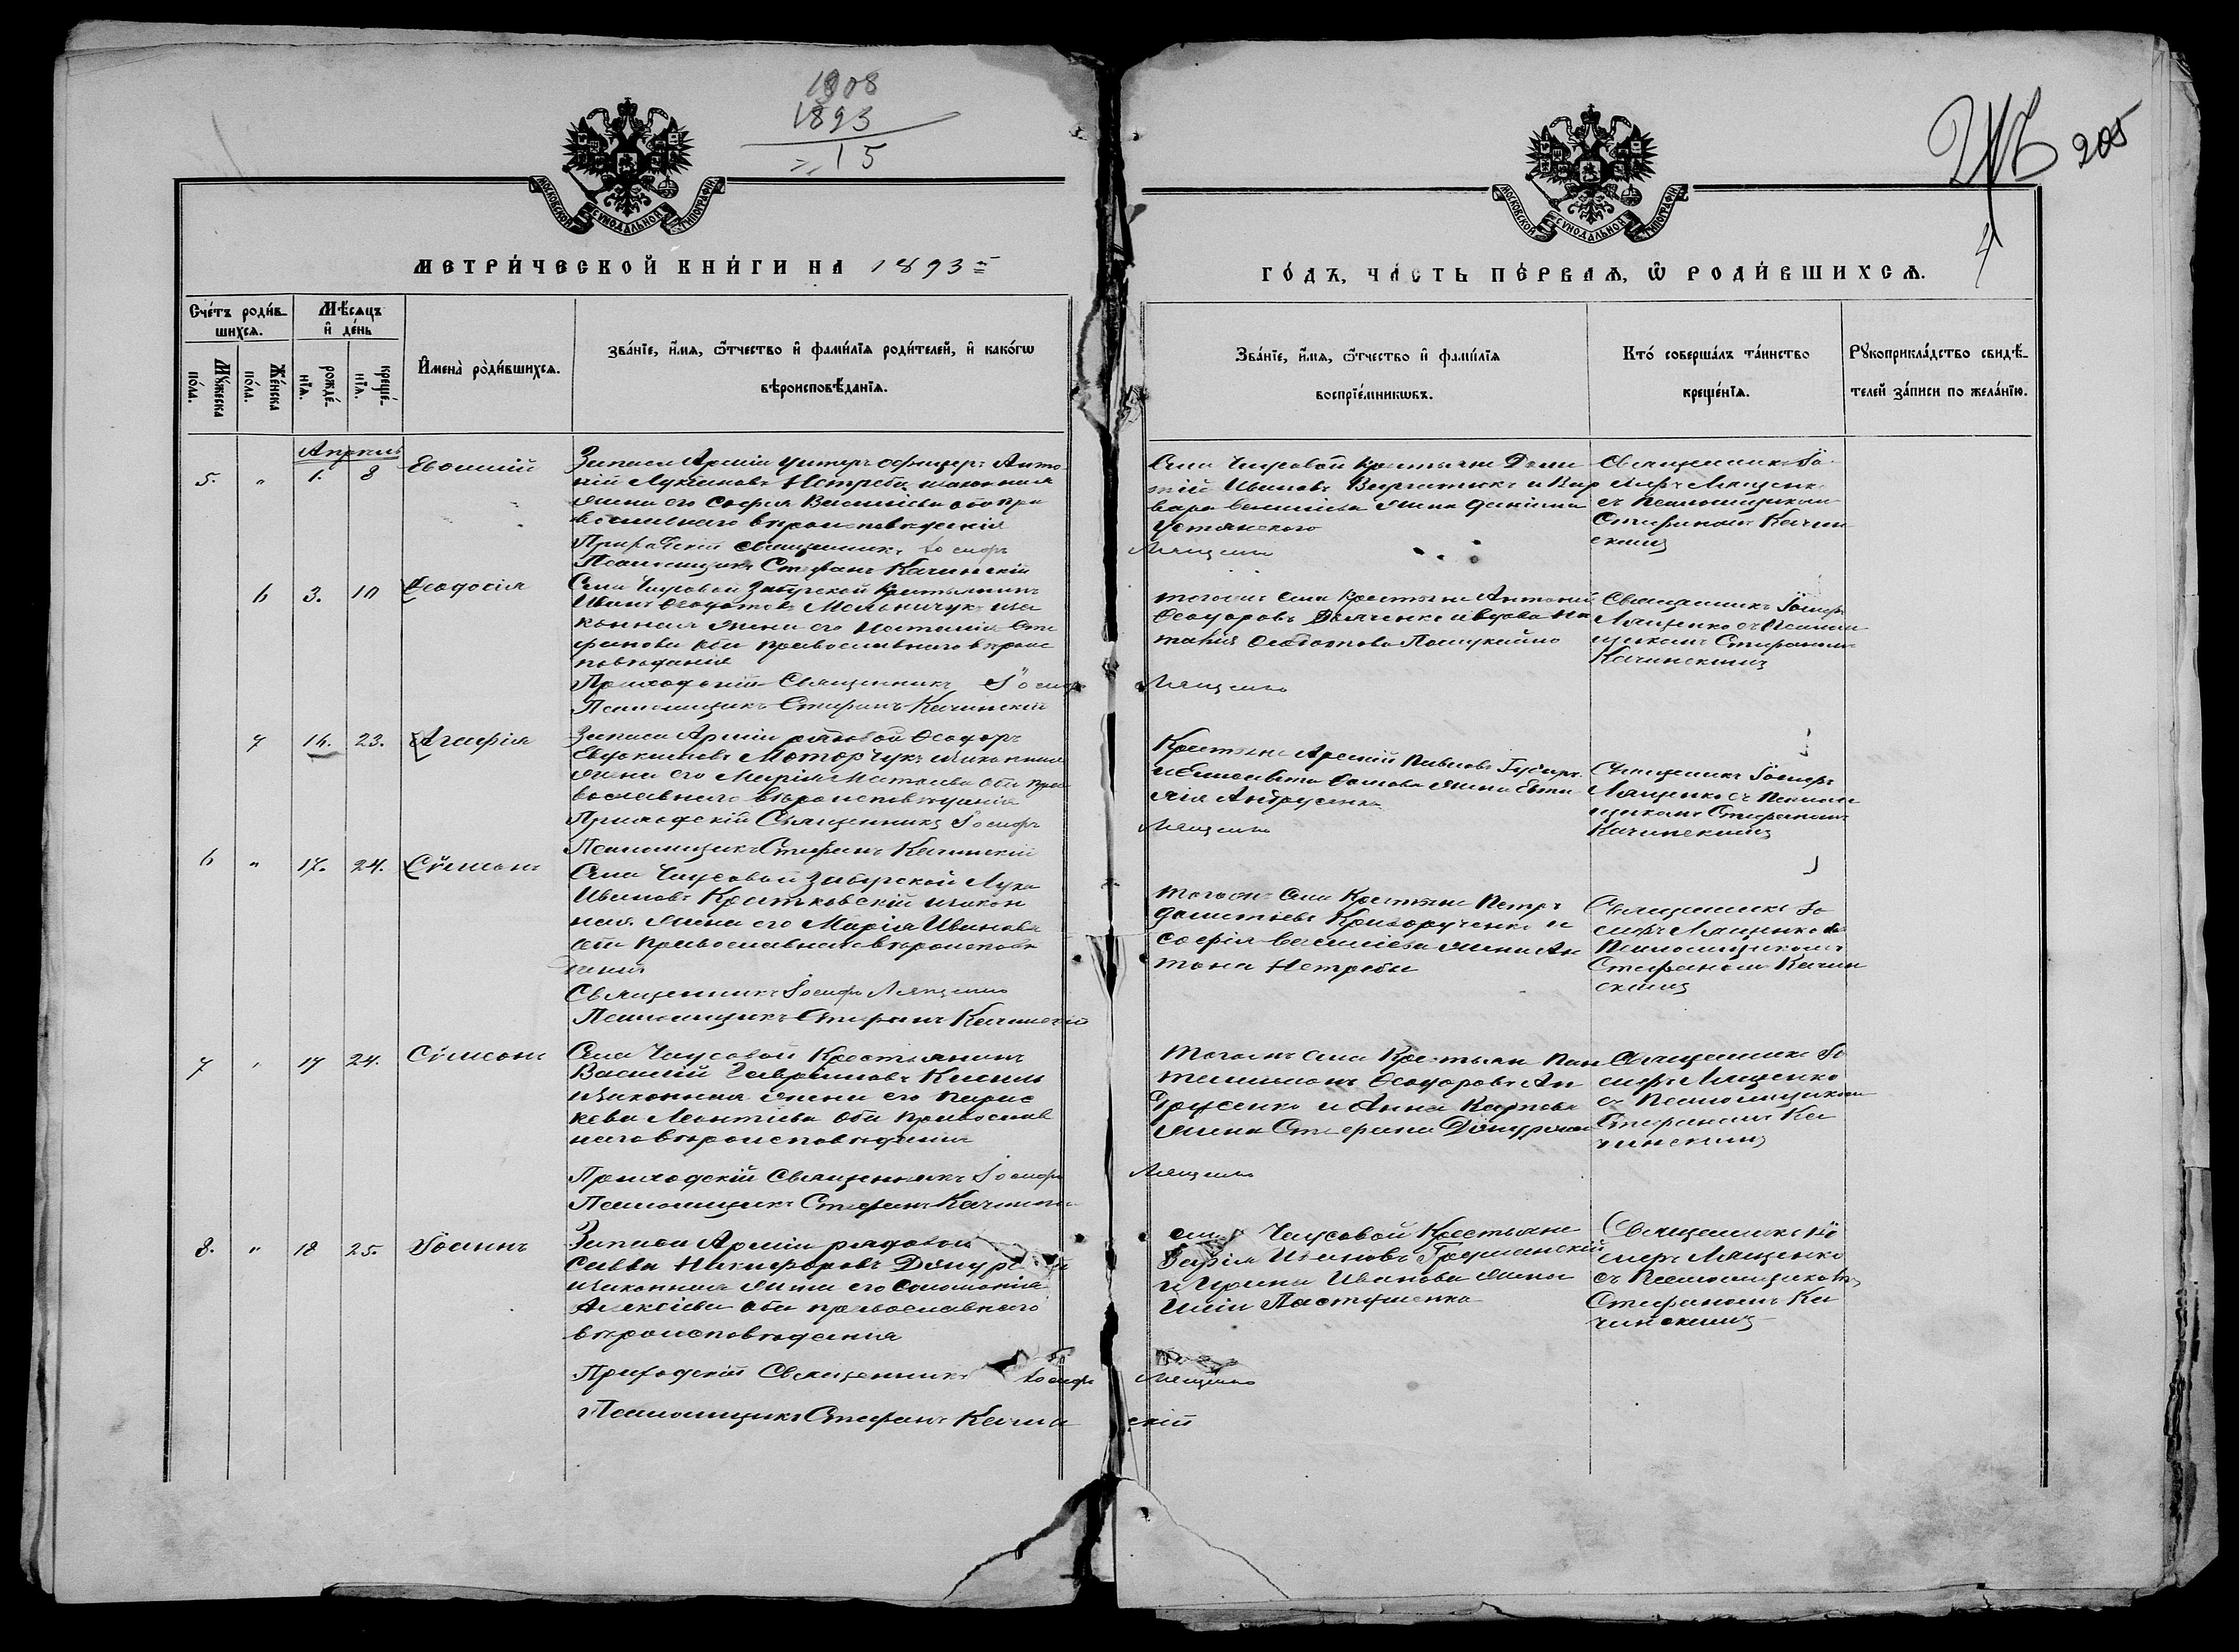 1908
1893
15
205
МОСКОВСКОЙ СУНОДАЛЬНОЙ ТИПОГРАФІИ
МОСКОВСКОЙ СУНОДАЛЬНОЙ ТИПОГРАФІИ
МЕТРИ́ЧЕСКОЙ КНИ́ГИ НА 1893
ГО́ДЪ, ЧА́СТЬ ПЕ́РВАѦ, Ѡ҆ РОДИ́ВШИХСѦ.
Сче́тъ роди́в-
шихсѧ.
Мꙋ́жеска по́ла.
Же́нска по́ла.
Мѣ́сѧцъ и҆ де́нь
рожде́-нїѧ.
креще́-нїѧ.
И҆мена̀ роди́вшихсѧ.
Зва́нїе, и҆́мѧ, ѻ҆́тчество и҆ фами́лїѧ роди́телей, и҆ како́гѡ
вѣроисповѣ́данїѧ.
Зва́нїе, и҆́мѧ, ѻ҆́тчество и҆ фами́лїѧ
воспрїе́мникѡвъ.
Кто̀ соверша́лъ та́инство
креще́нїѧ.
Рꙋкоприкла́дство свидѣ́-
телей за́писи по жела́нїю.
Апрѣль
5. " 1. 8 Евѳимій
Запаса Арміи унтеръ офицеръ Анто-
ній Лукіановъ Нетреба и законная
жена его Софія Василіева оба пра
вославнаго вѣроисповѣданія
Приходскій священникъ Іосифъ Лященко
Псаломщикъ Стефанъ Качинскій
Села Чаусовой крестьяне
Ивановъ и Вар
вара Василіева жена
Устянского
Священникъ Іо
сифъ Лященко
съ Псаломщикомъ
Стефаномъ Качин
скимъ
6 3. 10 Ѳеодосія
Села Чаусовой Забугской крестьянинъ
Иванъ Ѳеодотовъ Мельничукъ и за
конная жена его Наталія Сте
фанова оба православнаго вѣроис
повѣданія
Приходскій Священникъ Іосифъ Лященко
Псаломщикъ Стефанъ Качинскій
тогоже села крестьяне Антоній
Ѳеодоровъ и вдова На
талія Ѳеодотова
Священникъ Іосифъ
Лященко съ Псалом
щикомъ Стефаномъ
Качинскимъ
7 16. 23. Агафія
Запаса Арміи рядовой Ѳеодоръ
Евдокимовъ Моторчукъ и законная
жена его Марія Матѳеева оба пра
вославнаго вѣроисповѣданія
Приходскій Священникъ Іосифъ Лященко
Псаломщикъ Стефанъ Качинскій
Крестьяне Арсеній Павловъ
и Елисавета жена
Андрусенка
Священникъ Іосифъ
Лященко съ Псалом
щикомъ Стефаномъ
Качинскимъ
6 " 17. 24. Сѵмеонъ
Села Чаусовой Забугской Лука
Ивановъ Крятковскій и закон
ная жена его Марія Иванова
оба православнаго вѣроисповѣ
данія
Священникъ Іосифъ Лященко
Псаломщикъ Стефанъ Качинскій
тогоже села Крестьяне Петръ
Криворученко и
Софія Василіева жена Ан
тона Нетребы
Священникъ Іо
сифъ Лященко съ
Псаломщикомъ
Стефаномъ Качин
скимъ
7 " 17 24. Сѵмеонъ
Села Чаусовой Крестьянинъ
Василій Гавріиловъ Кисиль
и законная жена его Парас
кева Леонтіева оба православ
наго вѣроисповѣданія
Приходскій Священникъ Іосифъ Лященко
Псаломщикъ Стефанъ Качинскій
тогоже села Крестьяне Пан
телеимонъ Ѳеодоровъ Ан
друсенко и Анна Карпова
жена Стефана
Священникъ Іо
сифъ Лященко
съ Псаломщикомъ
Стефаномъ Ка
чинскимъ
8. " 18 25. Іоаннъ
Запаса Арміи рядовой
Савва Никифоровъ
и законная жена его Соломонія
Алексіева оба православнаго
вѣроисповѣданія
Приходскій Священникъ Іосифъ Лященко
Псаломщикъ Стефанъ Качинскій
села Чаусовой Крестьяне
Ивановъ
и Ирина Иванова жена
Иліи Пастушенка
Священникъ Іо
сифъ Лященко
съ Псаломщикомъ
Стефаномъ Ка
чинскимъ